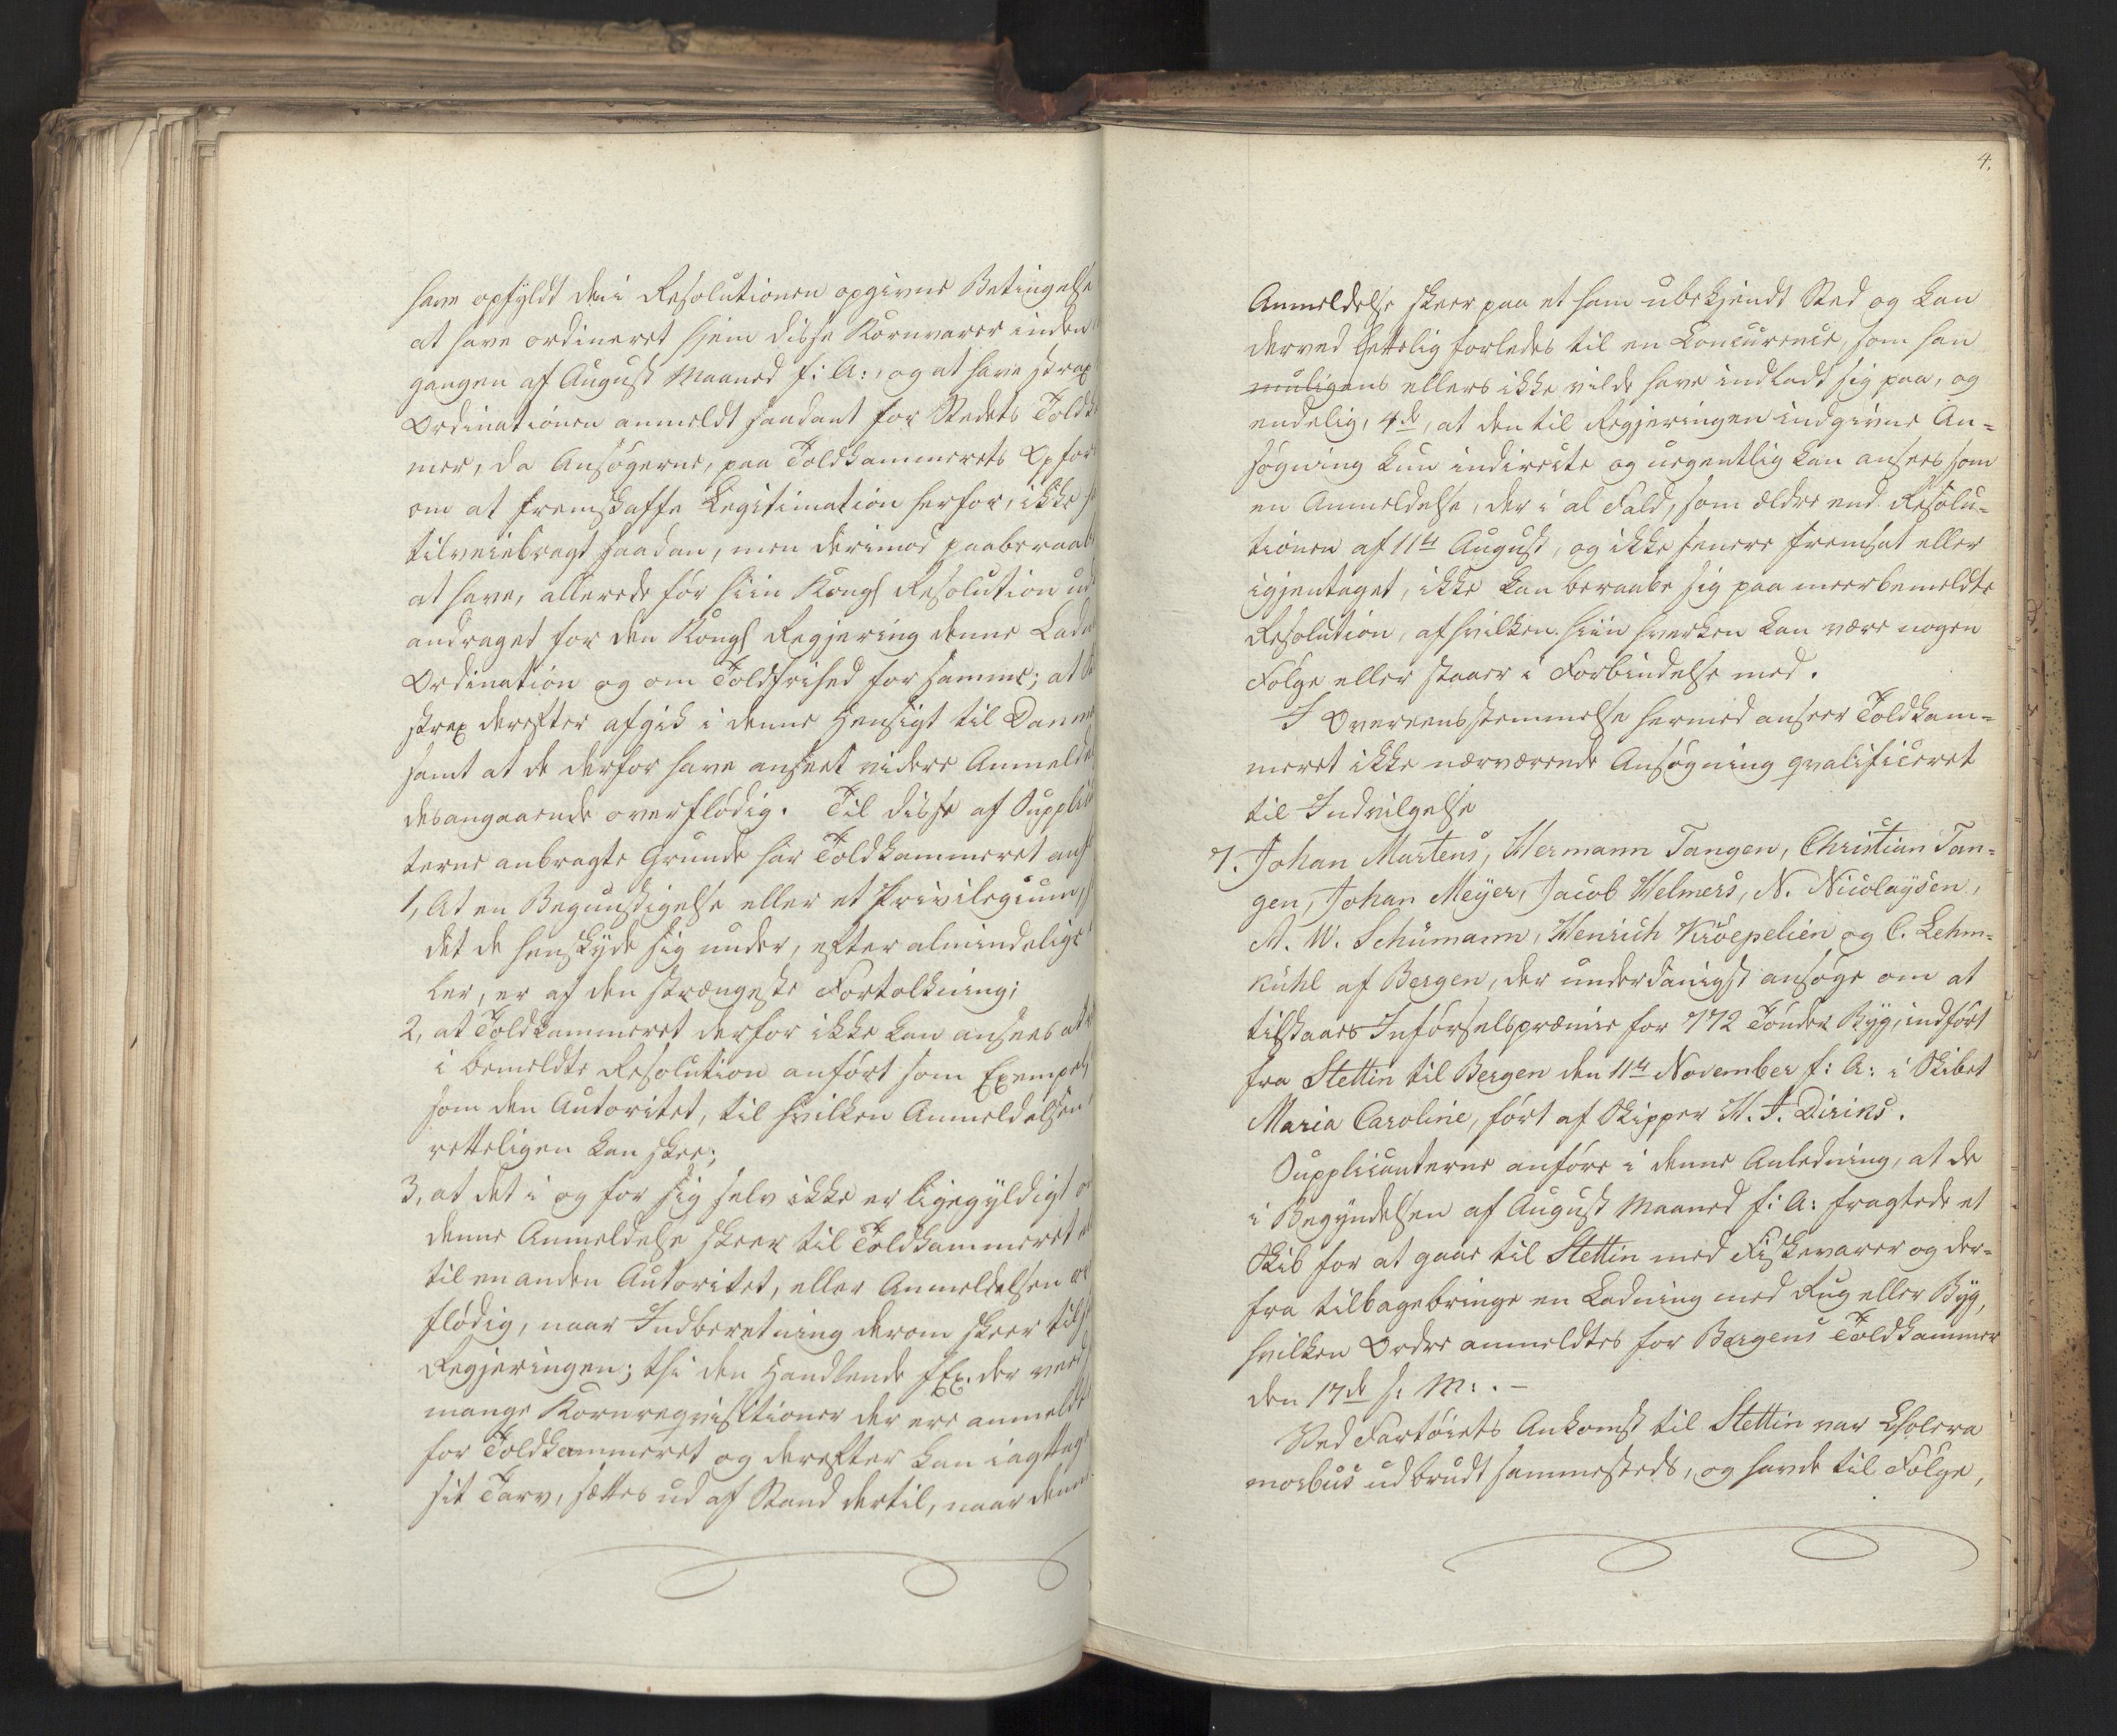 have opfyldt den i Resolutionen opgivne Betingelse
at have ordineret hjem disse Kornvarer inden
gangen af August Maaned f: A:, og at have strax
Ordinationen anmeldt saadant for Stedets Toldk
mer, da Ansøgerne, paa Toldkammerets Opfor
om at fremskaffe Legitimation herfor, ikke
tilveiebragt saadan, men derimod paaberaabt
at have, allerede før hiin Kongl Resolution ud
andraget for den Kongl Regjering denne Lad
Ordination og om Toldfrihed for samme; at
strax derefter afgik i denne Hensigt til Danm
samt at de derfor have anseet videre Anmeld
desangaaende overflødig. Til disse af Supplic
terne anbragte Grunde har Toldkammeret anf
1, At en Begunstigelse eller et Privilegium,
det de henskyde sig under, efter almindelige
ler, er af den strængeste Fortolkning;
2, at Toldkammeret derfor ikke kan ansees at
i bemeldte Resolution anført som Exempel,
som den Autoritet, til hvilken Anmeldelsen
retteligen kan skee;
3, at det i og for sig selv ikke er ligegyldigt
denne Anmeldelse skeer til Toldkammeret
til en anden Autoritet, eller Anmeldelsen
flødig, naar Indberetning derom skeer til
Regjeringen; thi den Handlende f Ex. der veed
mange Kornreqvisitioner der ere anmeldt
for Toldkammeret og derefter kan iagttage
sit Tarv, sættes ud af Stand dertil, naar denne
4.
Anmeldelse skeer paa et ham ubekjendt Sted og kan
derved lettelig forledes til en Concurence, som han
muligens ellers ikke vilde have indladt sig paa, og
endelig, 4de, at den til Regjeringen indgivne An-
søgning kun indirecte og uegentlig kan ansees som
en Anmeldelse, der i al Fald, som ældre end Resolu-
tionen af 11te August, og ikke senere fremsat eller
igjentaget, ikke kan beraabe sig paa meerbemeldte
Resolution, af hvilken hiin hverken kan være nogen
Følge eller staaer i Forbindelse med.
I Overeensstemmelse hermed anseer Toldkam-
meret ikke nærværende Ansøgning qvalificeret
til Indvilgelse
7. Johan Martens, Hermann Tangen, Christian Tan-
gen, Johan Meyer, Jacob Helmers, N. Nicolaysen,
A. W. Schumann, Henrich Kroepelien og C. Lehm-
kuhl af Bergen, der underdanigst ansøge om at
tilstaaes Inførselspræmie for 772 Tønder Byg, indført
fra Stettin til Bergen den 11te November f: A: i Skibet
Maria Caroline, ført af Skipper H. J. Dirins.
Supplicanterne anføre i denne Anledning, at de
i Begyndelsen af August Maaned f: A: fragtede et
Skib for at gaae til Stettin med Fiskevarer og der-
fra tilbagebringe en Ladning med Rug eller Byg,
hvilken Ordre anmeldtes for Bergens Toldkammer
den 17de s: M: . -
Ved Fartøiets Ankomst til Stettin var Cholera
morbus udbrudt sammesteds, og havde til Følge,